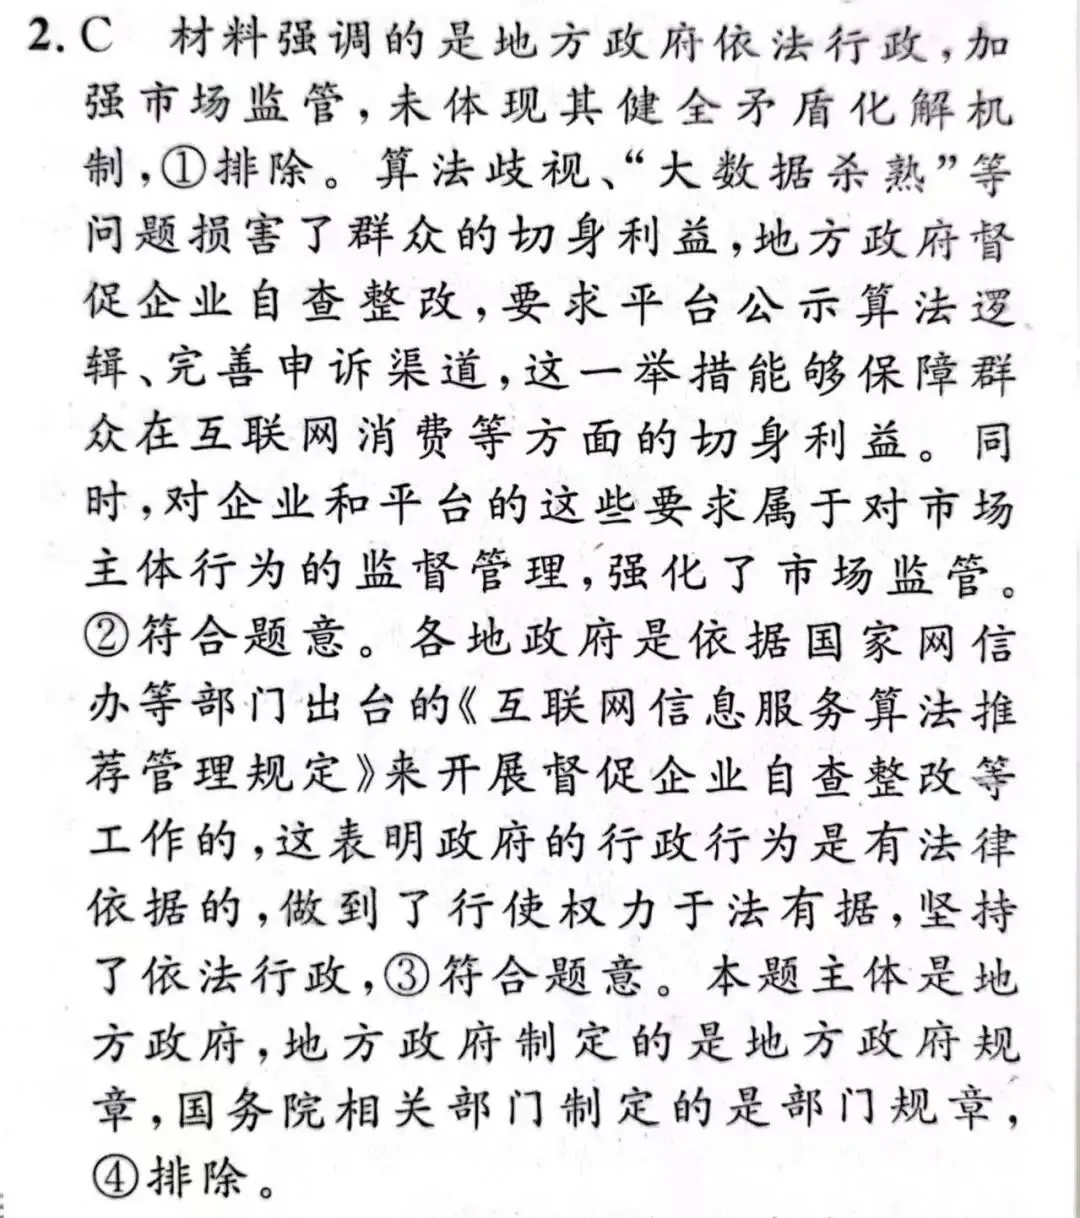 2. C 材料强调的是地方政府依法行政,加
强市场监管,未体现其健全矛盾化解机
制,①排除。算法歧视、“大数据杀熟”等
问题损害了群众的切身利益,地方政府督
促企业自查整改,要求平台公示算法逻
辑、完善申诉渠道,这一举措能够保障群
众在互联网消费等方面的切身利益。同
时,对企业和平台的这些要求属于对市场
主体行为的监督管理,强化了市场监管。
②符合题意。各地政府是依据国家网信
办等部门出台的《互联网信息服务算法推
荐管理规定》来开展督促企业自查整改等
工作的,这表明政府的行政行为是有法律
依据的,做到了行使权力于法有据,坚持
了依法行政,③符合题意。本题主体是地
方政府,地方政府制定的是地方政府规
章,国务院相关部门制定的是部门规章,
④排除。